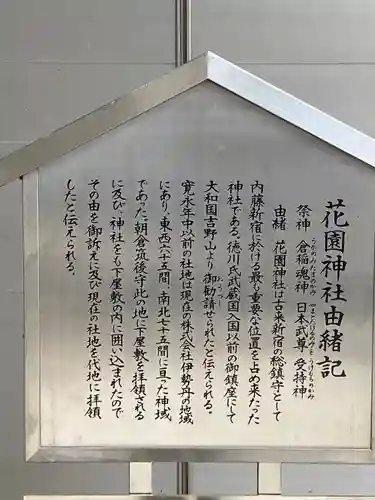 花園神社由緒記
祭神 倉稲魂神 日本武尊 受持神
うかのみたまのかみ やまとたけるのみこと うけもちのかみ
由緒 花園神社は古来新宿の総鎮守として
内藤新宿に於ける最も重要な位置を占め来たった
神社である。徳川氏武蔵国入国以前の御鎮座にして
大和国吉野山より御勧請せられたと伝えられる。
寛永年中以前の社地は現在の株式会社伊勢丹の地域
にあり、東西六十五間、南北七十五間に亘った神域
であった。朝倉筑後守此の地に下屋敷を拝領される
に及び、神社をも下屋敷の内に囲い込まれたので
その由を御訴えに及び現在の社地を代地に拝領
したと伝えられる。